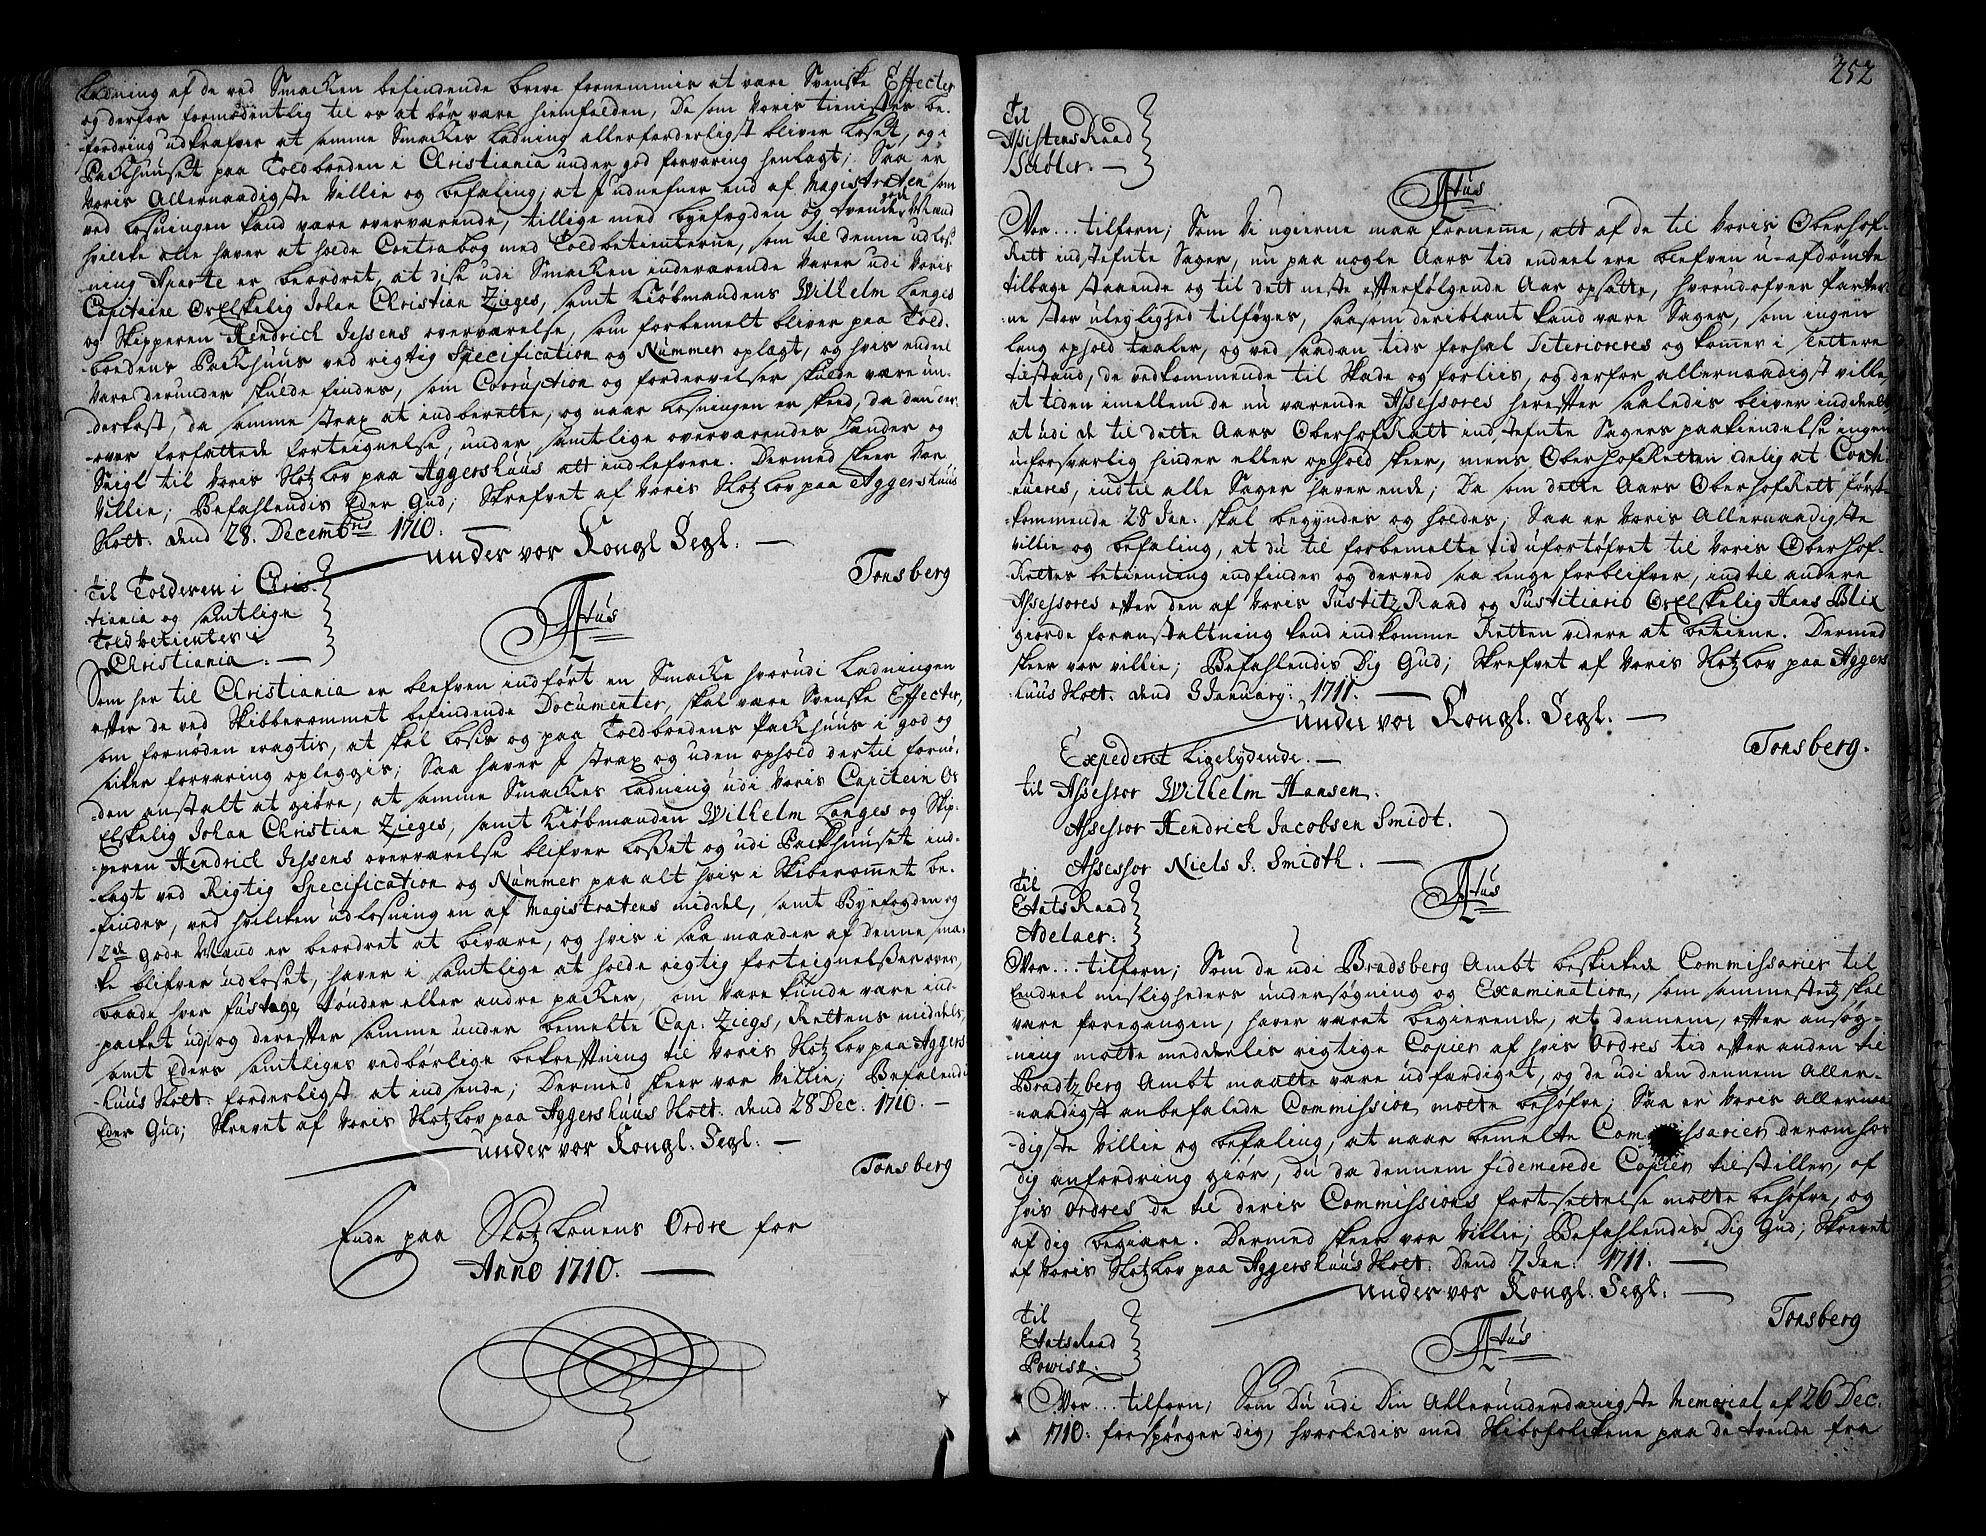 Ladning af de ved Smacken befindende breve fornemmis at være Svenske Effecter
og derfor formodentlig til os at bør være hiemfalden, Da som Voris tienistes be-
-fordring udkrafver at samme Smackes Ladning allerforderligst bliver losset, og i
Packhuuset paa Toldboeden i Christiania under god forvaring henlagt; Saa er
Voris Allernaadigste Villie og befaling, at I udnefner end af Magistraten som
ved losningen kand være overværende, tillige med byefogden og tvende gode Mænd
hvilke alle haver at holde Contrabog med Toldbetienterne, som til denne udlos-
ning Aparte er beordret, at disse udi Smacken indeværende Varer udi Voris
Capitaine Os Elskelig Johan Christian Zieges, samt Kiöbmandens Wilhelm Langes
og Skipperen Hendrich Jessens overværelse, som forbemelt bliver paa Told-
boedens Packhuus ved rigtig Specification og Nummer oplagt, og hvis endeel
Vare derunder skulde findes, som Corruption og fordervelser skulde være un-
-derkast, da samme strax at indberette, og naar losningen er skeed, da den der-
-over forfattede forteignelse, under samtlige overværendes hænder og
Seigl til Voris Slotzlov paa Aggershuus at indlefvere. Dermed skeer Vor
Villie; Befahlendis Eder Gud; Skrefvet af Voris Slotzlov paa Aggershuus
Slott: dend 28. Decembris 1710.
under vor Kongl. Segl.
Tonsberg
Til Tolderen i Chris-
tiania og samtlige
Toldbetienter i
Christiania.
Som her til Christiania er blefven indført en Smacke hvorudi Ladningen
efter de ved Skibberommet befindende Documenter, skal være Svenske Effecter,
som fornøden eragtis, at skal losis og paa Toldboedens Packhuus i god og
siker forvaring opleggis; Saa haver I strax og uden ophold dertil fornø-
-den anstalt at giøre, at samme Smackes ladning udi Voris Capitein Os
Elskelig Johan Christian Zieges, samt Kiøbmanden Wilhelm Langes og Skip-
peren Hendrich Jessens overværelse blifver losset og udi Packhuuset ind-
-lagt ved Rigtig Specification og Nummer paa alt hvis i Skiberommet be-
-findes, ved hvilcken udlosning en af Magistratens middel, samt Byefogden og
2de gode Mænd er beordret at bivære, og hvis i saa maader af denne Sma-
ke blifver udloset, haver i samtlige at holde rigtig forteignelßer over,
baade hver fustage tønder eller andre packer, som Vare kunde være ind-
packet udi, og derefter samme under bemelte Cap: Ziegs, Rettens middels,
samt Eders samtliges vedbørlige bekreftning til Voris Slotzlov paa Aggers-
-huus Slott forderligst at indsende; Dermed skeer vor Villie; Befalendis
Eder Gud; Skrevet af Voris Slotzlov paa Aggershuus Slott. dend 28 Dec. 1710.
under vor Kongl. Segl.
Tonsberg
Ende paa Slotzlouens Ordre for
Anno 1710.
252
Til
Assistens Raad
Stibler.
Vor... tilforn; Som Vi ugierne maa fornemme, att af de til Voris Oberhof-
Rett indstefnte Sager, nu paa nogle Aars tid endeel ere blefven u-afdømte
tilbage staaende og til dett neste efterfølgende Aar opsatte, hvorudofver Parter-
-ne stor uleylighed tilføyes, saasom deriblant kand være Sager, som ingen
lang ophold taaler, og ved saadan tids forhal Deterioreres og komer i slettere
tilstand, de vedkommende til Skade og forliis, og derfor allernaadigst ville,
at tiden imellem de nu værende Assessores herefter saaledis bliver inddeelt
at udi de til dette Aars OberhofRett indstefnte Sagers paakiendelse ingen
uforsvarlig hinder eller ophold skeer, mens OberhofRetten delig at Conti-
nueres, indtil alle Sager haver ende; Da som dette Aars OberhofRett først-
kommende 28 Jan. skal begyndes og holdes; Saa er Voris Allernaadigste
villie og befaling, at du til forbemelte tid ufortøfvet til Voris Oberhof-
Rettes betienning indfinder og derved saa lenge forblifver, indtil andere
Assessores efter den af Voris Justitz Raad og Justitiario Os Elskelig Hans Blix
giorde foranstaltning kand indkomme Retten videre at betiene. Dermed
skeer vor villie; Befahlendis Dig Gud; Skrefvet af Voris Slotzlov paa Aggers
huus Slott. dend 3 January: 1711.
under vor Kongl. Segl.
Tonsberg.
Expederet Ligelydende.
til Assessor Wilhelm Hansen.
Assessor Hendrich Jacobsen Smidt.
Assessor Niels J. Smidth.
Til
Etats Raad
Adelaer:
Vor... tilforn; Som de udi Bradsberg Ambt beskickede Commissarier til
Eendeel misligheders undersøgning og Examination, som sammestedz skal
være foregangen, haver været begierende, at dennem, efter ansøg-
ning motte meddeelis rigtige Copier af hvis Ordres tid efter anden til
Bradtzberg Ambt maatte være udfærdiget, og de udi den dennem Aller-
naadigst anbefalede Commission motte behøfve; Saa er Voris allernaa-
digste Villie og befaling, at naar bemelte Commissarier derom hos
dig anfordring giør, du da dennem fidemerede Copier tilstiller, af
hvis Ordres de til deris Commissions fortsettelse motte behøfve, og
af dig begiære. Dermed skeer vor Villie; Befahlendis Dig Gud; Skrevet
af Voris Slotzlov paa Aggershuus Slott: Dend 7 Jan: 1711.
under vor Kongl. Segl.
Tonsberg
Til
Etatsraad
Powisz.
Vor... tilforn; Som Du udi Din Allerunderdanigste Memorial af 26 Dec.
1710. forspørger dig, hvorledis med Skibsfolckene paa de tvende fra